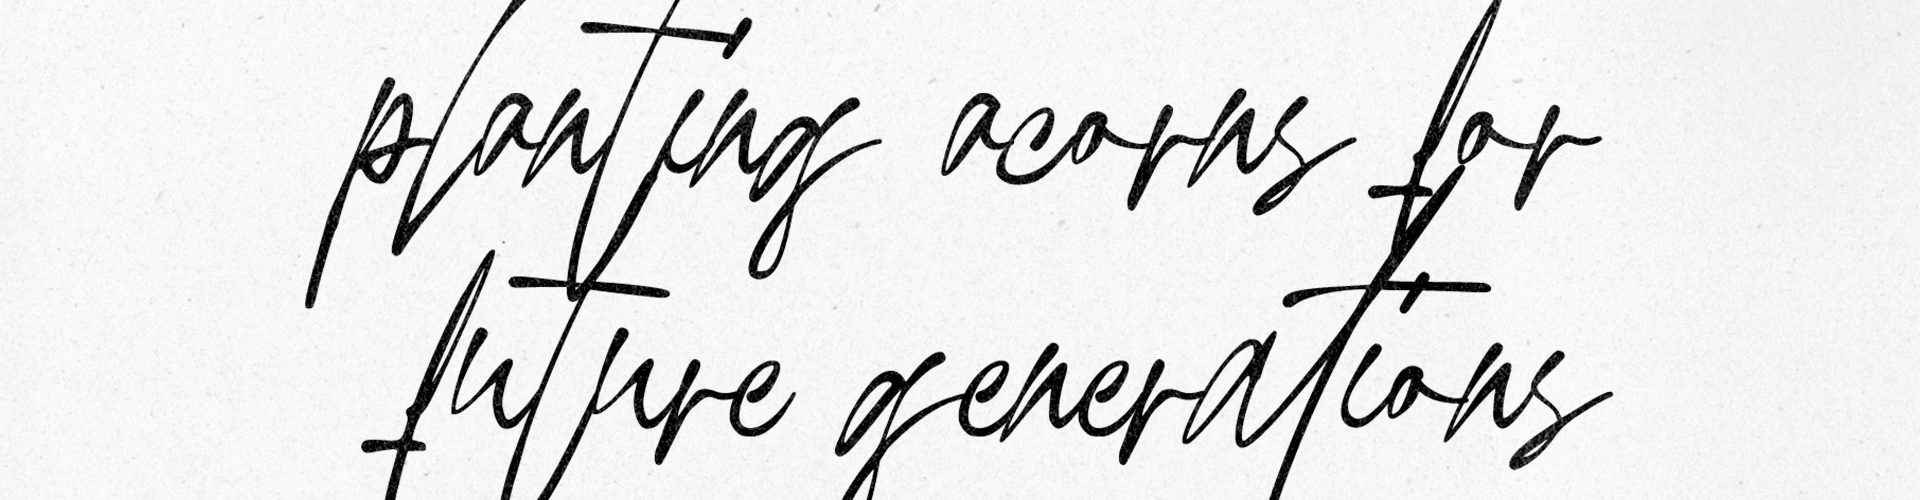 planting acorns for
future generations